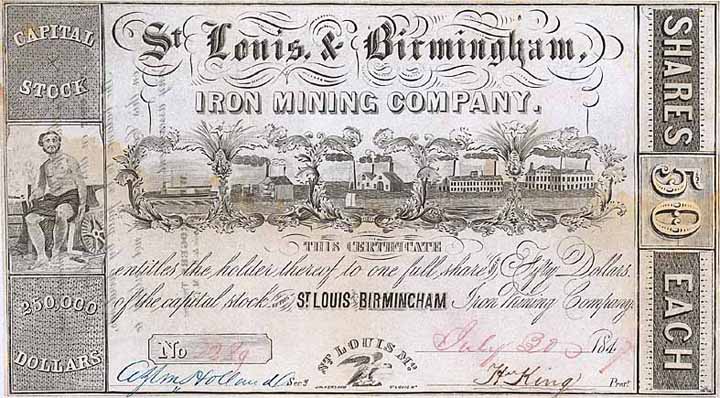 CAPITAL
STOCK
250,000
DOLLARS
St. Louis, & Birmingham,
IRON MINING COMPANY.
THIS CERTIFICATE
entitles the holder thereof to one full share of Fifty Dollars
of the capital stock of the ST LOUIS AND BIRMINGHAM Iron Mining Company.
No
July 30 1847
ST LOUIS Mo.
Holland Secy
Wm King Prest
SHARES
50
EACH